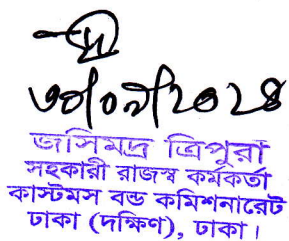 জসিমদ্র ত্রিপুরা
সহকারী রাজস্ব কর্মকর্তা
কাস্টমস বন্ড কমিশনারেট
ঢাকা (দক্ষিণ), ঢাকা।